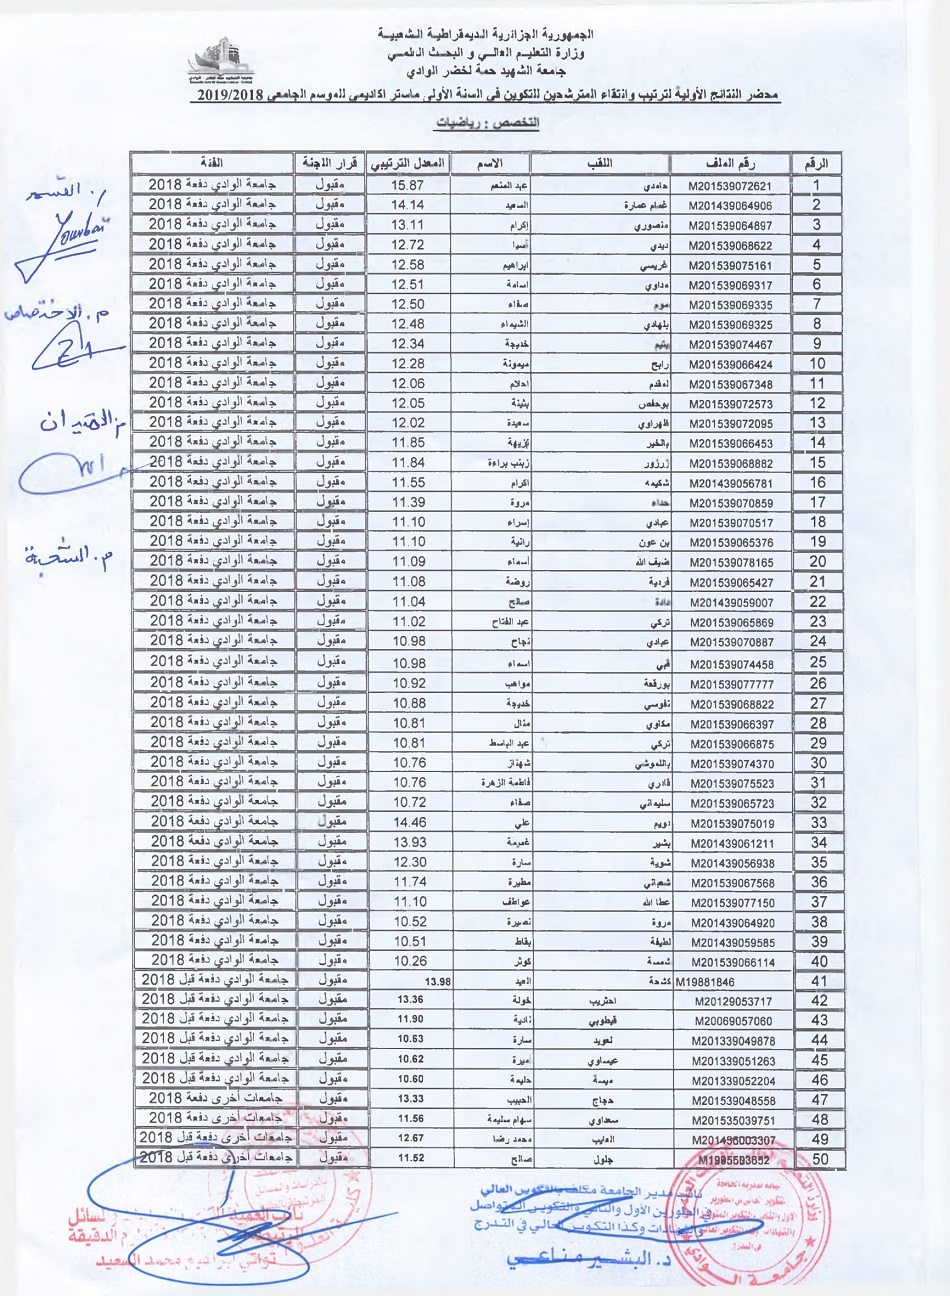 الجمهورية الجزائرية الديمقراطية الشعبية
وزارة التعليم العالي و البحث العلمي
جامعة الشهيد حمة لخضر الوادي
محضر النتائج الأولية لترتيب وانتقاء المترشحين للتكوين في السنة الأولى ماستر اكاديمي للموسم الجامعي 2019/2018
التخصص : رياضيات
الرقم رقم الملف اللقب الاسم المعدل الترتيبي قرار اللجنة الفئة
1 M201539072621 حامدي عبد المنعم 15.87 مقبول جامعة الوادي دفعة 2018
2 M201439064906 غمام عمارة السعيد 14.14 مقبول جامعة الوادي دفعة 2018
3 M201539064897 منصوري إكرام 13.11 مقبول جامعة الوادي دفعة 2018
4 M201539068622 ديدي آسيا 12.72 مقبول جامعة الوادي دفعة 2018
5 M201539075161 غريسي ابراهيم 12.58 مقبول جامعة الوادي دفعة 2018
6 M201539069317 مداوي اسامة 12.51 مقبول جامعة الوادي دفعة 2018
7 M201539069335 صفاء 12.50 مقبول جامعة الوادي دفعة 2018
8 M201539069325 بلهادي الشيماء 12.48 مقبول جامعة الوادي دفعة 2018
9 M201539074467 يتيم خديجة 12.34 مقبول جامعة الوادي دفعة 2018
10 M201539066424 رابح ميمونة 12.28 مقبول جامعة الوادي دفعة 2018
11 M201539067348 لمقدم احلام 12.06 مقبول جامعة الوادي دفعة 2018
12 M201539072573 بوحفص بثينة 12.05 مقبول جامعة الوادي دفعة 2018
13 M201539072095 ظهراوي سعيدة 12.02 مقبول جامعة الوادي دفعة 2018
14 M201539066453 بالخير نزيهة 11.85 مقبول جامعة الوادي دفعة 2018
15 M201539068882 زرزور زينب براءة 11.84 مقبول جامعة الوادي دفعة 2018
16 M201439056781 شكيمه اكرام 11.55 مقبول جامعة الوادي دفعة 2018
17 M201539070859 حداء مروة 11.39 مقبول جامعة الوادي دفعة 2018
18 M201539070517 عبادي إسراء 11.10 مقبول جامعة الوادي دفعة 2018
19 M201539065376 بن عون رانية 11.10 مقبول جامعة الوادي دفعة 2018
20 M201539078165 ضيف الله اسماء 11.09 مقبول جامعة الوادي دفعة 2018
21 M201539065427 فردية روضة 11.08 مقبول جامعة الوادي دفعة 2018
22 M201439059007 دادة صالح 11.04 مقبول جامعة الوادي دفعة 2018
23 M201539065869 تركي عبد الفتاح 11.02 مقبول جامعة الوادي دفعة 2018
24 M201539070887 عبادي نجاح 10.98 مقبول جامعة الوادي دفعة 2018
25 M201539074458 قبي اسماء 10.98 مقبول جامعة الوادي دفعة 2018
26 M201539077777 بورقعة مواهب 10.92 مقبول جامعة الوادي دفعة 2018
27 M201539068822 نقوسي خديجة 10.88 مقبول جامعة الوادي دفعة 2018
28 M201539066397 مكاوي منال 10.81 مقبول جامعة الوادي دفعة 2018
29 M201539066875 تركي عبد الباسط 10.81 مقبول جامعة الوادي دفعة 2018
30 M201539074370 باللموشي شهناز 10.76 مقبول جامعة الوادي دفعة 2018
31 M201539075523 قادري فاطمة الزهرة 10.76 مقبول جامعة الوادي دفعة 2018
32 M201539065723 سليماني صفاء 10.72 مقبول جامعة الوادي دفعة 2018
33 M201539075019 نويم علي 14.46 مقبول جامعة الوادي دفعة 2018
34 M201439061211 بشير غميمة 13.93 مقبول جامعة الوادي دفعة 2018
35 M201439056938 شوية سارة 12.30 مقبول جامعة الوادي دفعة 2018
36 M201539067568 شعباني مطيرة 11.74 مقبول جامعة الوادي دفعة 2018
37 M201539077150 عطا الله عواطف 11.10 مقبول جامعة الوادي دفعة 2018
38 M201439064920 مروة نصيرة 10.52 مقبول جامعة الوادي دفعة 2018
39 M201439059585 لطيفة بقاط 10.51 مقبول جامعة الوادي دفعة 2018
40 M201539066114 شمسة كوثر 10.26 مقبول جامعة الوادي دفعة 2018
41 M19881846 كشحة العيد 13.98 مقبول جامعة الوادي دفعة قبل 2018
42 M20129053717 احثريب خولة 13.36 مقبول جامعة الوادي دفعة قبل 2018
43 M20069057060 قيطوبي نادية 11.90 مقبول جامعة الوادي دفعة قبل 2018
44 M201339049878 لعويد سارة 10.63 مقبول جامعة الوادي دفعة قبل 2018
45 M201339051263 عيساوي اميرة 10.62 مقبول جامعة الوادي دفعة قبل 2018
46 M201339052204 ميسة حليمة 10.60 مقبول جامعة الوادي دفعة قبل 2018
47 M201539048558 حجاج الحبيب 13.33 مقبول جامعات أخرى دفعة 2018
48 M201535039751 سعداوي سهام سليمة 11.56 مقبول جامعات أخرى دفعة 2018
49 M201436003307 العايب محمد رضا 12.67 مقبول جامعات أخرى دفعة قبل 2018
50 M1995593652 جلول صالح 11.52 مقبول جامعات أخرى دفعة قبل 2018
ر. القسم
م. الاختصاص
م. الميدان
م. الشعبة
نائب مدير الجامعة مكلف بالتكوين العالي
في الطورين الأول والثاني والتكوين المتواصل
والشهادات وكذا التكوين العالي في التدرج
د. البشير مناعي
نائب العميد
تواتي ابراهيم محمد السعيد
جامعة الوادي